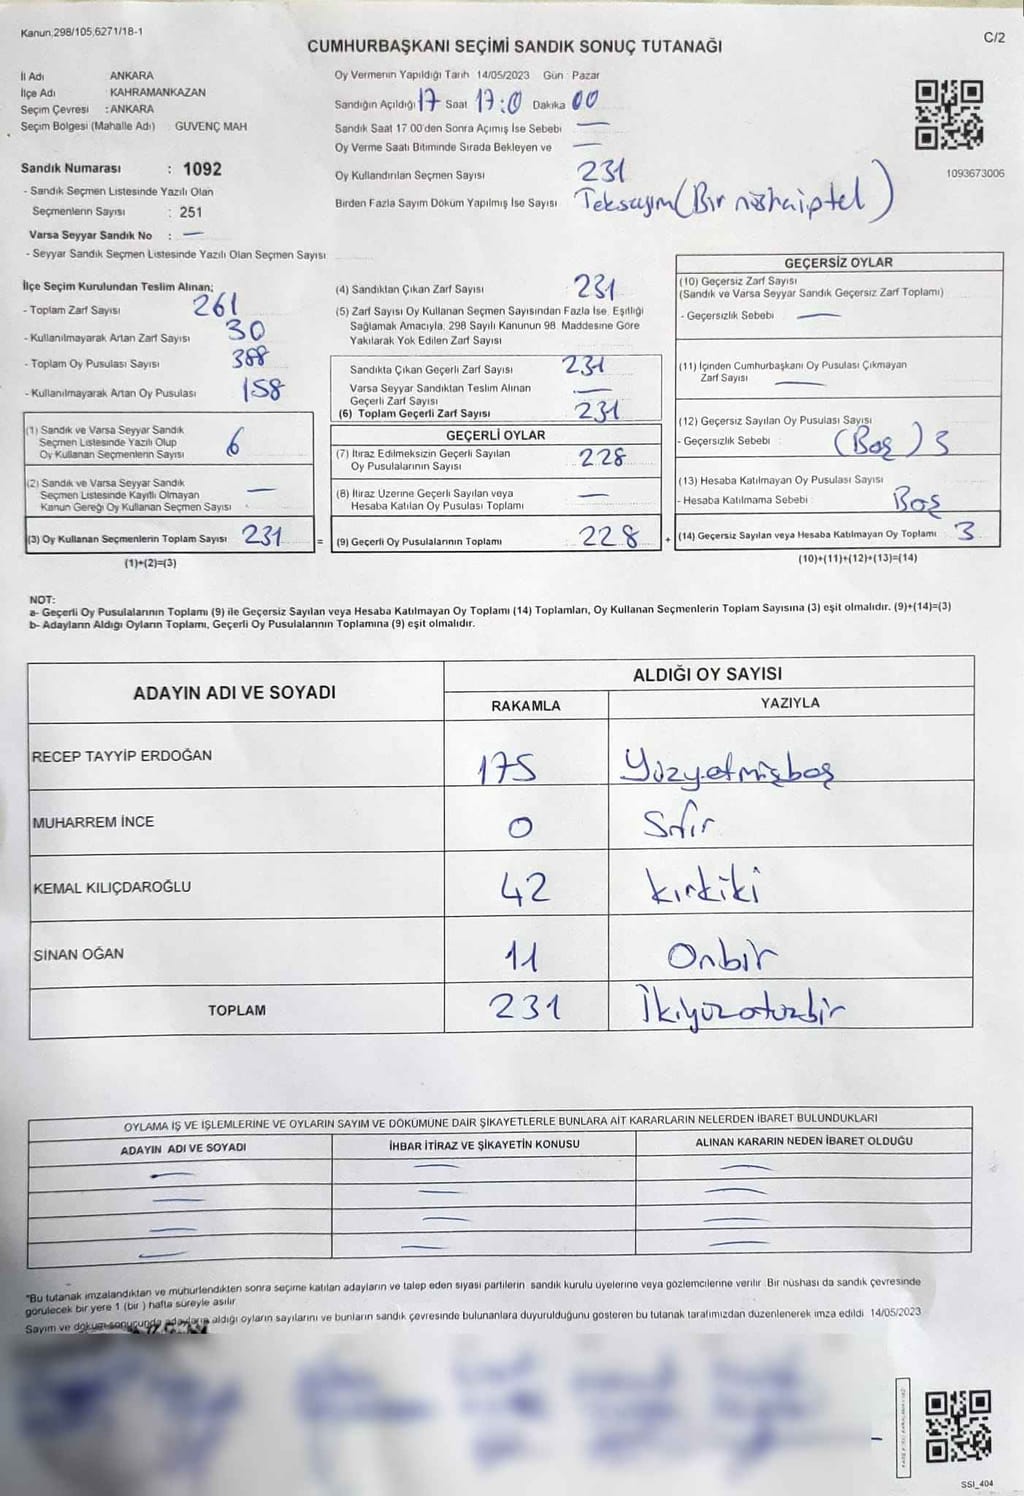 Kanun,298/105,6271/18-1
C/2
CUMHURBAŞKANI SEÇİMİ SANDIK SONUÇ TUTANAĞI
İl Adı ANKARA
İlçe Adı : KAHRAMANKAZAN
Seçim Çevresi : ANKARA
Seçim Bölgesi (Mahalle Adı) GÜVENÇ MAH
Oy Vermenin Yapıldığı Tarih 14/05/2023 Gün : Pazar
Sandığın Açıldığı 17 Saat 17:0 Dakika 00
Sandık Saat 17 00'den Sonra Açımış İse Sebebi —
Oy Verme Saati Bitiminde Sırada Bekleyen ve —
Oy Kullandırılan Seçmen Sayısı 231
Birden Fazla Sayım Döküm Yapılmış İse Sayısı Teksayım (Bir nüshaiptel)
1093673006
Sandık Numarası : 1092
- Sandık Seçmen Listesinde Yazılı Olan
Seçmenlerin Sayısı : 251
Varsa Seyyar Sandık No : —
- Seyyar Sandık Seçmen Listesinde Yazılı Olan Seçmen Sayısı
İlçe Seçim Kurulundan Teslim Alınan;
- Toplam Zarf Sayısı 261
- Kullanılmayarak Artan Zarf Sayısı 30
- Toplam Oy Pusulası Sayısı 388
- Kullanılmayarak Artan Oy Pusulası 158
(1) Sandık ve Varsa Seyyar Sandık
Seçmen Listesinde Yazılı Olup
Oy Kullanan Seçmenlerin Sayısı 6
(2) Sandık ve Varsa Seyyar Sandık
Seçmen Listesinde Kayıtlı Olmayan
Kanun Gereği Oy Kullanan Seçmen Sayısı —
(3) Oy Kullanan Seçmenlerin Toplam Sayısı 231
(1)+(2)=(3)
(4) Sandıktan Çıkan Zarf Sayısı 231
(5) Zarf Sayısı Oy Kullanan Seçmen Sayısından Fazla İse, Eşitliği
Sağlamak Amacıyla, 298 Sayılı Kanunun 98. Maddesine Göre
Yakılarak Yok Edilen Zarf Sayısı
Sandıkta Çıkan Geçerli Zarf Sayısı 231
Varsa Seyyar Sandıktan Teslim Alınan
Geçerli Zarf Sayısı —
(6) Toplam Geçerli Zarf Sayısı 231
GEÇERLİ OYLAR
(7) İtiraz Edilmeksizin Geçerli Sayılan
Oy Pusulalarının Sayısı 228
(8) İtiraz Üzerine Geçerli Sayılan veya
Hesaba Katılan Oy Pusulası Toplamı —
= (9) Geçerli Oy Pusulalarının Toplamı 228 +
GEÇERSİZ OYLAR
(10) Geçersiz Zarf Sayısı
(Sandık ve Varsa Seyyar Sandık Geçersiz Zarf Toplamı)
- Geçersizlik Sebebi —
(11) İçinden Cumhurbaşkanı Oy Pusulası Çıkmayan
Zarf Sayısı —
(12) Geçersiz Sayılan Oy Pusulası Sayısı
- Geçersizlik Sebebi : (Boş) 3
(13) Hesaba Katılmayan Oy Pusulası Sayısı
- Hesaba Katılmama Sebebi Boş
(14) Geçersiz Sayılan veya Hesaba Katılmayan Oy Toplamı 3
(10)+(11)+(12)+(13)=(14)
NOT:
a- Geçerli Oy Pusulalarının Toplamı (9) ile Geçersiz Sayılan veya Hesaba Katılmayan Oy Toplamı (14) Toplamları, Oy Kullanan Seçmenlerin Toplam Sayısına (3) eşit olmalıdır. (9)+(14)=(3)
b- Adayların Aldığı Oyların Toplamı, Geçerli Oy Pusulalarının Toplamına (9) eşit olmalıdır.
ADAYIN ADI VE SOYADI
ALDIĞI OY SAYISI
RAKAMLA YAZIYLA
RECEP TAYYİP ERDOĞAN 175 Yüzyetmişbeş
MUHARREM İNCE 0 Sıfır
KEMAL KILIÇDAROĞLU 42 kırkiki
SİNAN OĞAN 11 Onbir
TOPLAM 231 İkiyüzotuzbir
OYLAMA İŞ VE İŞLEMLERİNE VE OYLARIN SAYIM VE DÖKÜMÜNE DAİR ŞİKAYETLERLE BUNLARA AİT KARARLARIN NELERDEN İBARET BULUNDUKLARI
ADAYIN ADI VE SOYADI İHBAR İTİRAZ VE ŞİKAYETİN KONUSU ALINAN KARARIN NEDEN İBARET OLDUĞU
— — —
— — —
— — —
— — —
"Bu tutanak imzalandıktan ve mühürlendikten sonra seçime katılan adayların ve talep eden siyasi partilerin sandık kurulu üyelerine veya gözlemcilerine verilir. Bir nüshası da sandık çevresinde
görülecek bir yere 1 (bir ) hafta süreyle asılır
Sayım ve döküm sonucunda adayların aldığı oyların sayılarını ve bunların sandık çevresinde bulunanlara duyurulduğunu gösteren bu tutanak tarafımızdan düzenlenerek imza edildi 14/05/2023
SSİ_404